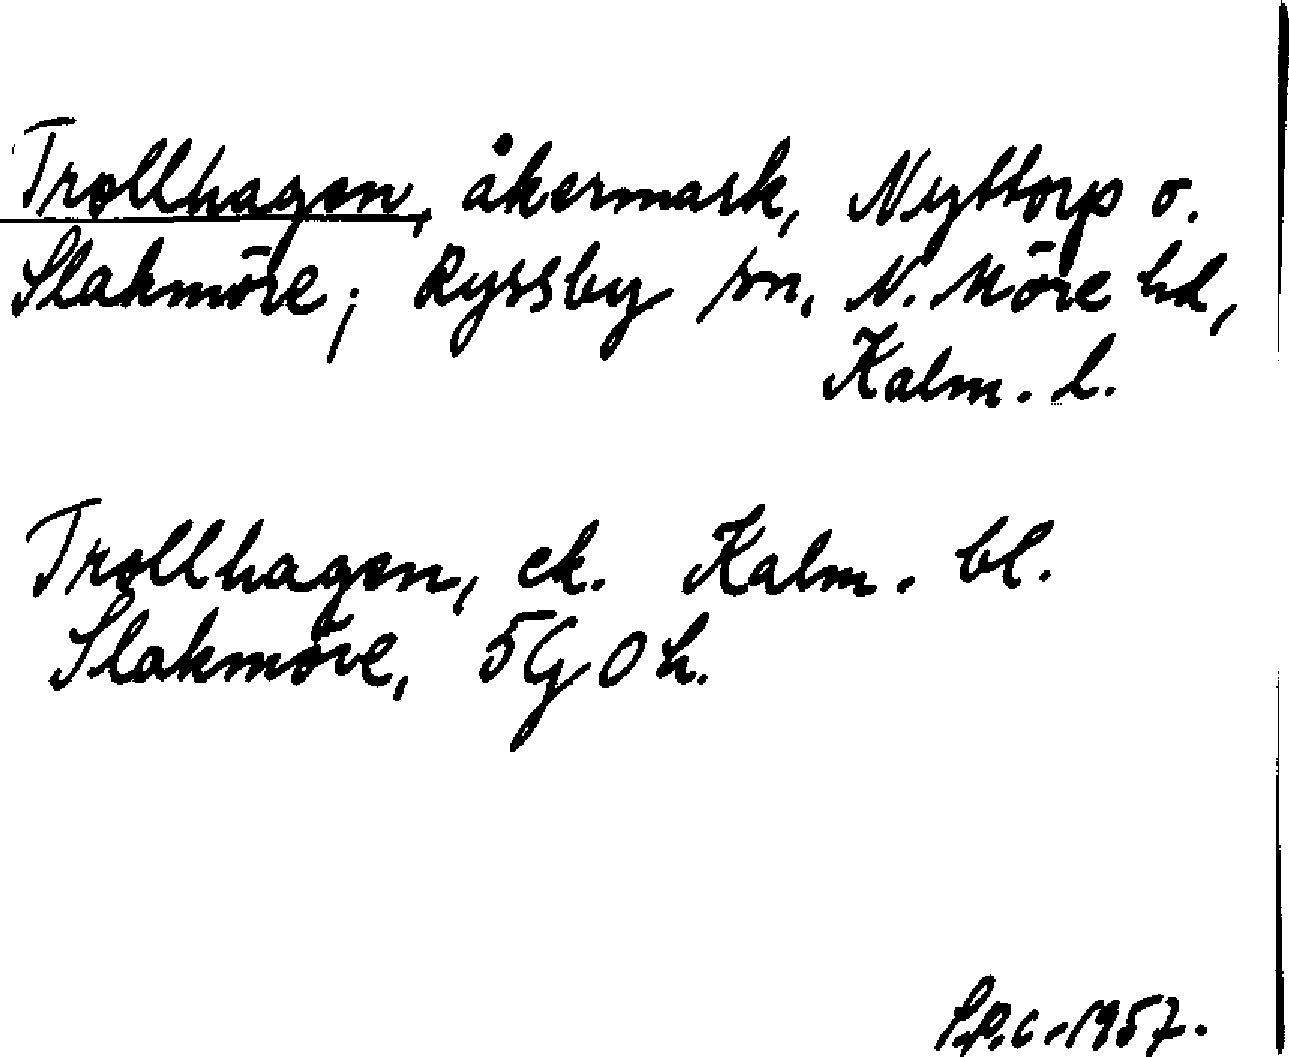 Trollhagen, åkermark, Nyttorp o.
Slakmöre; Ryssby sn. N. Möre hd,
Kalm. l.
Trollhagen, ek. Kalm. bl.
Slakmöre, 5G0h.
1957.